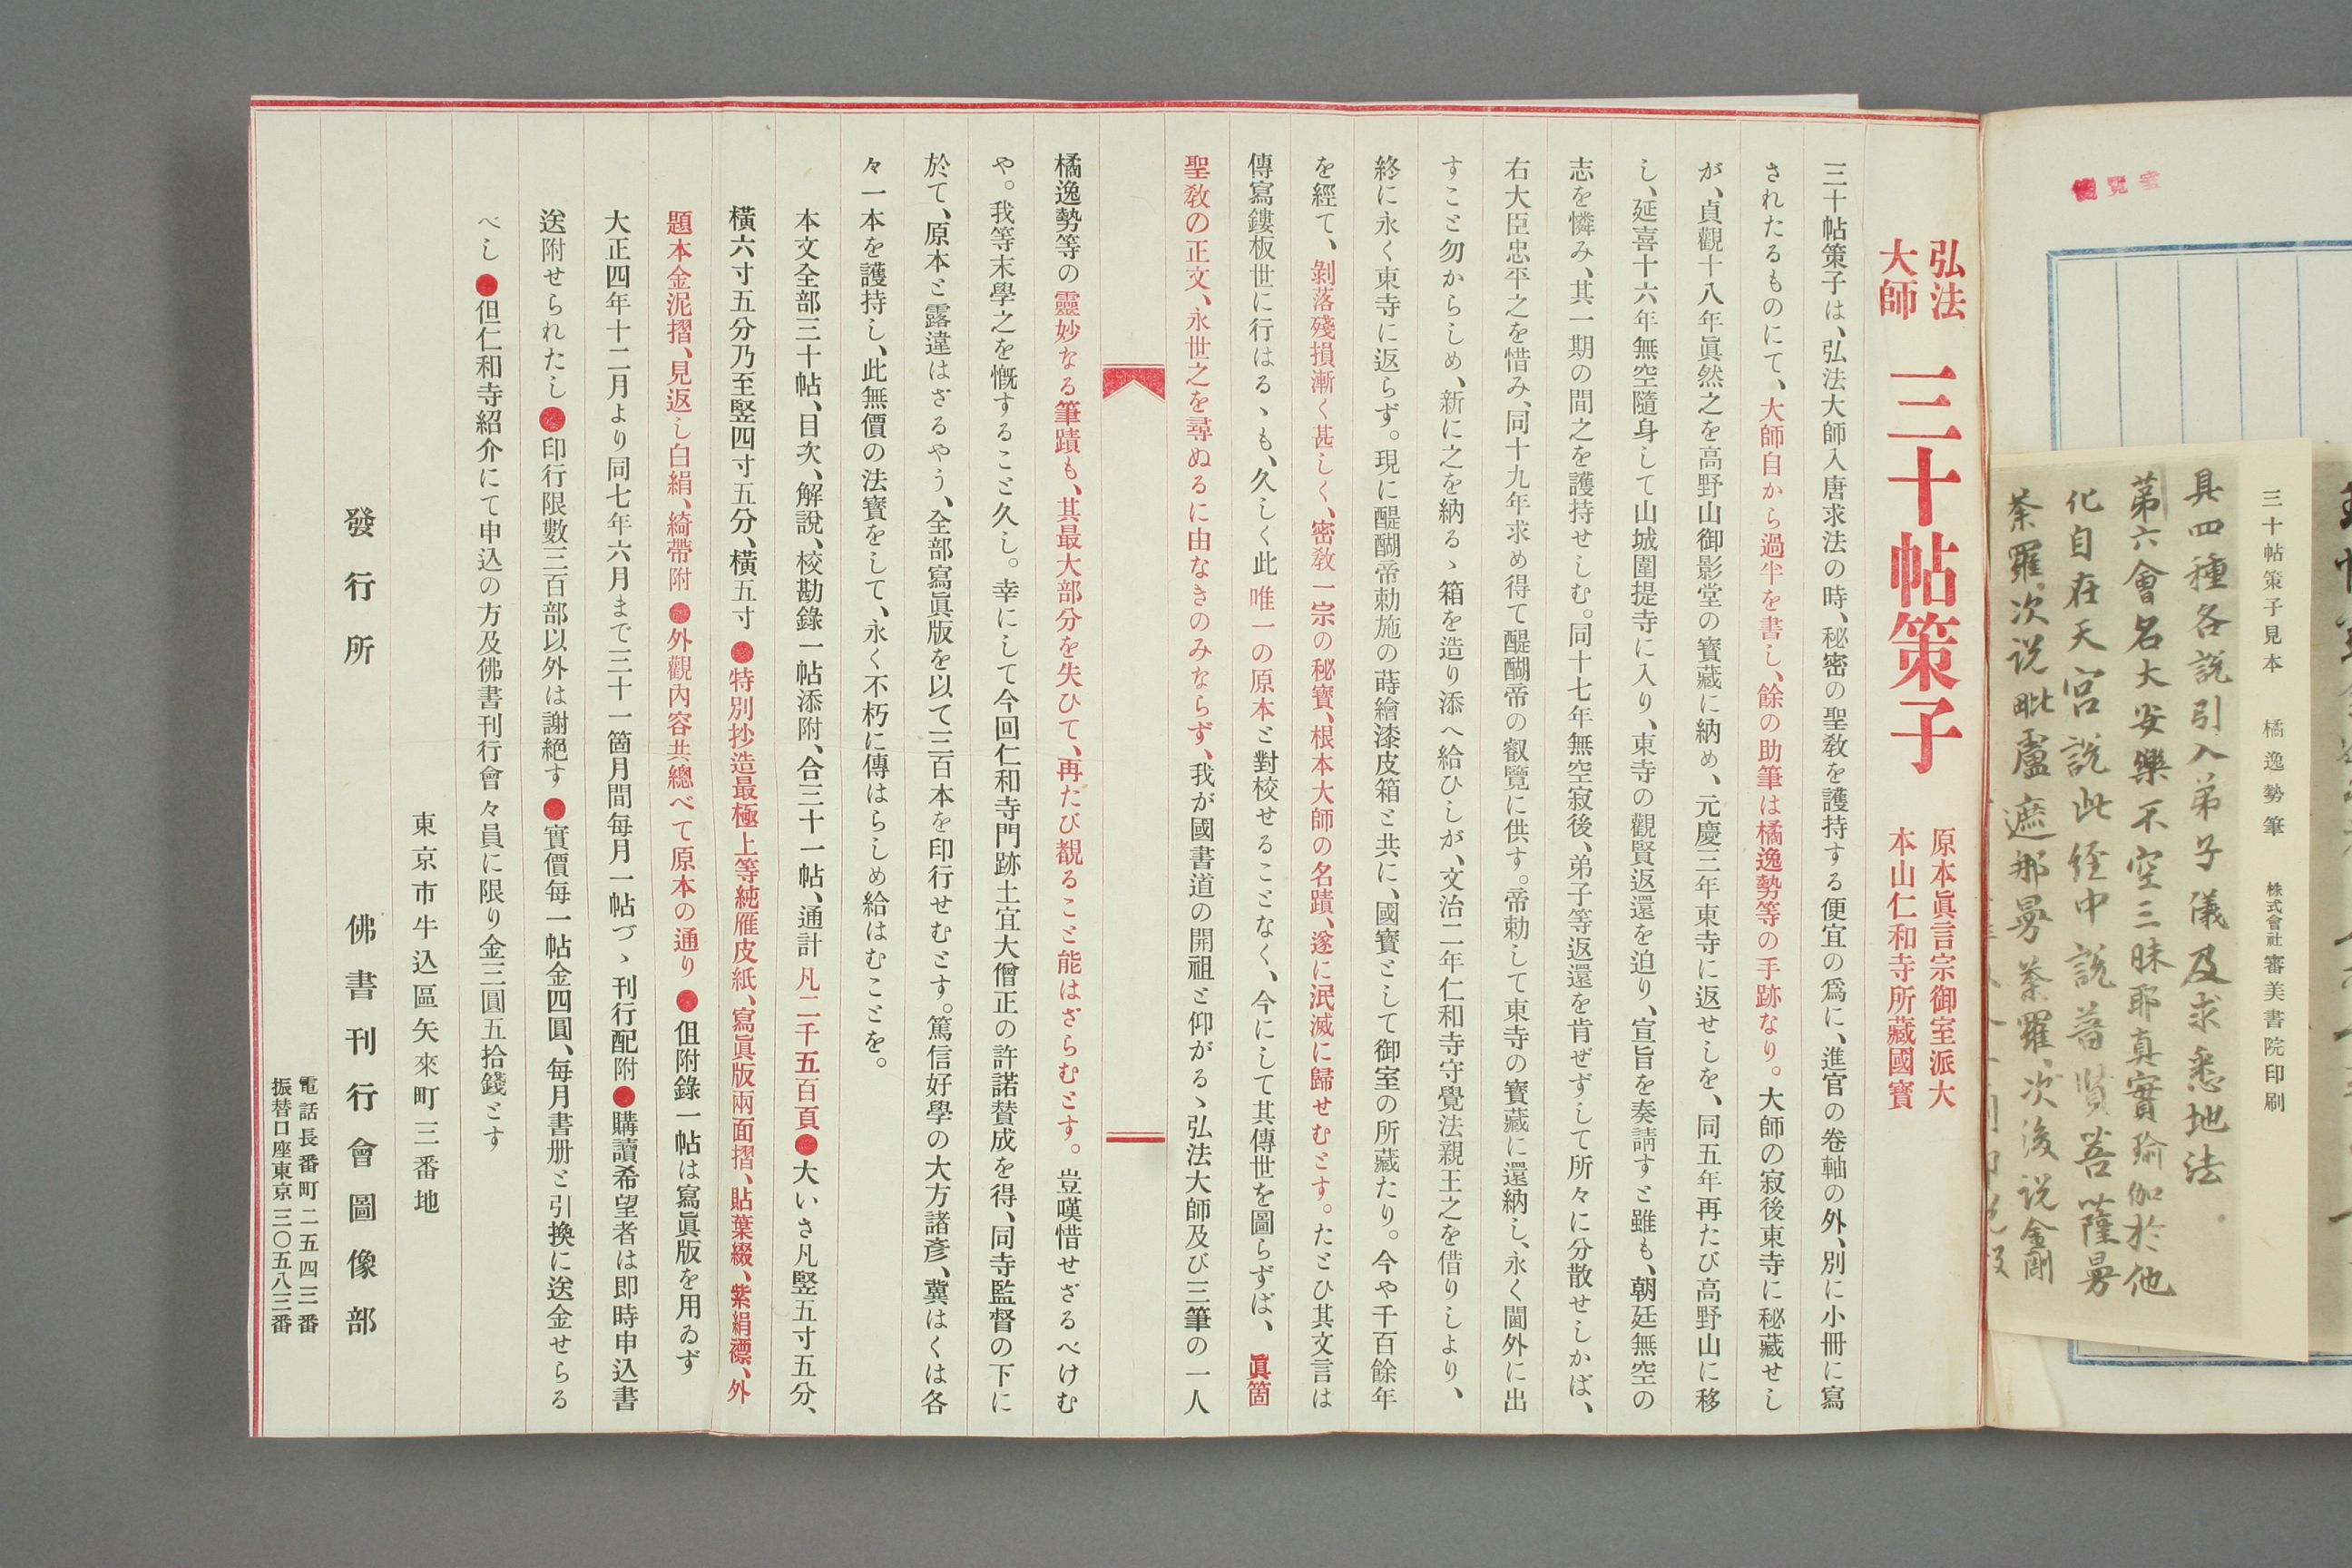 便覽室
三十帖策子見本　橘逸勢筆　株式會社審美書院印刷
具四種各說引入弟子儀及求悉地法
第六會名大安樂不空三昧耶真實瑜伽於他
化自在天宮說此経中說普賢菩薩曼
荼羅次說毗盧遮那曼荼羅次後說金剛
弘法大師　三十帖策子　原本眞言宗御室派大本山仁和寺所藏國寶
三十帖策子は、弘法大師入唐求法の時、秘密の聖敎を護持する便宜の爲に、進官の卷軸の外、別に小冊に寫
されたるものにて、大師自から過半を書し、餘の助筆は橘逸勢等の手跡なり。大師の寂後東寺に秘藏せし
が、貞觀十八年眞然之を高野山御影堂の寶藏に納め、元慶三年東寺に返せしを、同五年再たび高野山に移
し、延喜十六年無空隨身して山城圍提寺に入り、東寺の觀賢返還を迫り、宣旨を奏請すと雖も、朝廷無空の
志を憐み、其一期の間之を護持せしむ。同十七年無空寂後、弟子等返還を肯ぜずして所々に分散せしかば、
右大臣忠平之を惜み、同十九年求め得て醍醐帝の叡覽に供す。帝勅して東寺の寶藏に還納し、永く閫外に出
すこと勿からしめ、新に之を納るゝ箱を造り添へ給ひしが、文治二年仁和寺守覺法親王之を借りしより、
終に永く東寺に返らず。現に醍醐帝勅施の蒔繪漆皮箱と共に、國寶として御室の所藏たり。今や千百餘年
を經て、剝落殘損漸く甚しく、密敎一宗の秘寶、根本大師の名蹟、遂に泯滅に歸せむとす。たとひ其文言は
傳寫鏤板世に行はるゝも、久しく此唯一の原本と對校せることなく、今にして其傳世を圖らずば、眞箇
聖敎の正文、永世之を尋ぬるに由なきのみならず、我が國書道の開祖と仰がるゝ弘法大師及び三筆の一人
橘逸勢等の靈妙なる筆蹟も、其最大部分を失ひて、再たび覩ること能はざらむとす。豈嘆惜せざるべけむ
や。我等末學之を慨すること久し。幸にして今回仁和寺門跡土宜大僧正の許諾賛成を得、同寺監督の下に
於て、原本と露違はざるやう、全部寫眞版を以て三百本を印行せむとす。篤信好學の大方諸彥、冀はくは各
々一本を護持し、此無價の法寶をして、永く不朽に傳はらしめ給はむことを。
本文全部三十帖、目次、解說、校勘錄一帖添附、合三十一帖、通計凡二千五百頁●大いさ凡竪五寸五分、
橫六寸五分乃至竪四寸五分、橫五寸●特別抄造最極上等純雁皮紙、寫眞版兩面摺、貼葉綴、紫絹褾、外
題本金泥摺、見返し白絹、綺帶附●外觀內容共總べて原本の通り●但附錄一帖は寫眞版を用ゐず
大正四年十二月より同七年六月まで三十一箇月間每月一帖づゝ刊行配附●購讀希望者は即時申込書
送附せられたし●印行限數三百部以外は謝絕す●實價每一帖金四圓、每月書册と引換に送金せらる
べし●但仁和寺紹介にて申込の方及佛書刊行會々員に限り金三圓五拾錢とす
東京市牛込區矢來町三番地
發行所　佛書刊行會圖像部
電話長番町二五四三番
振替口座東京三〇五八三番